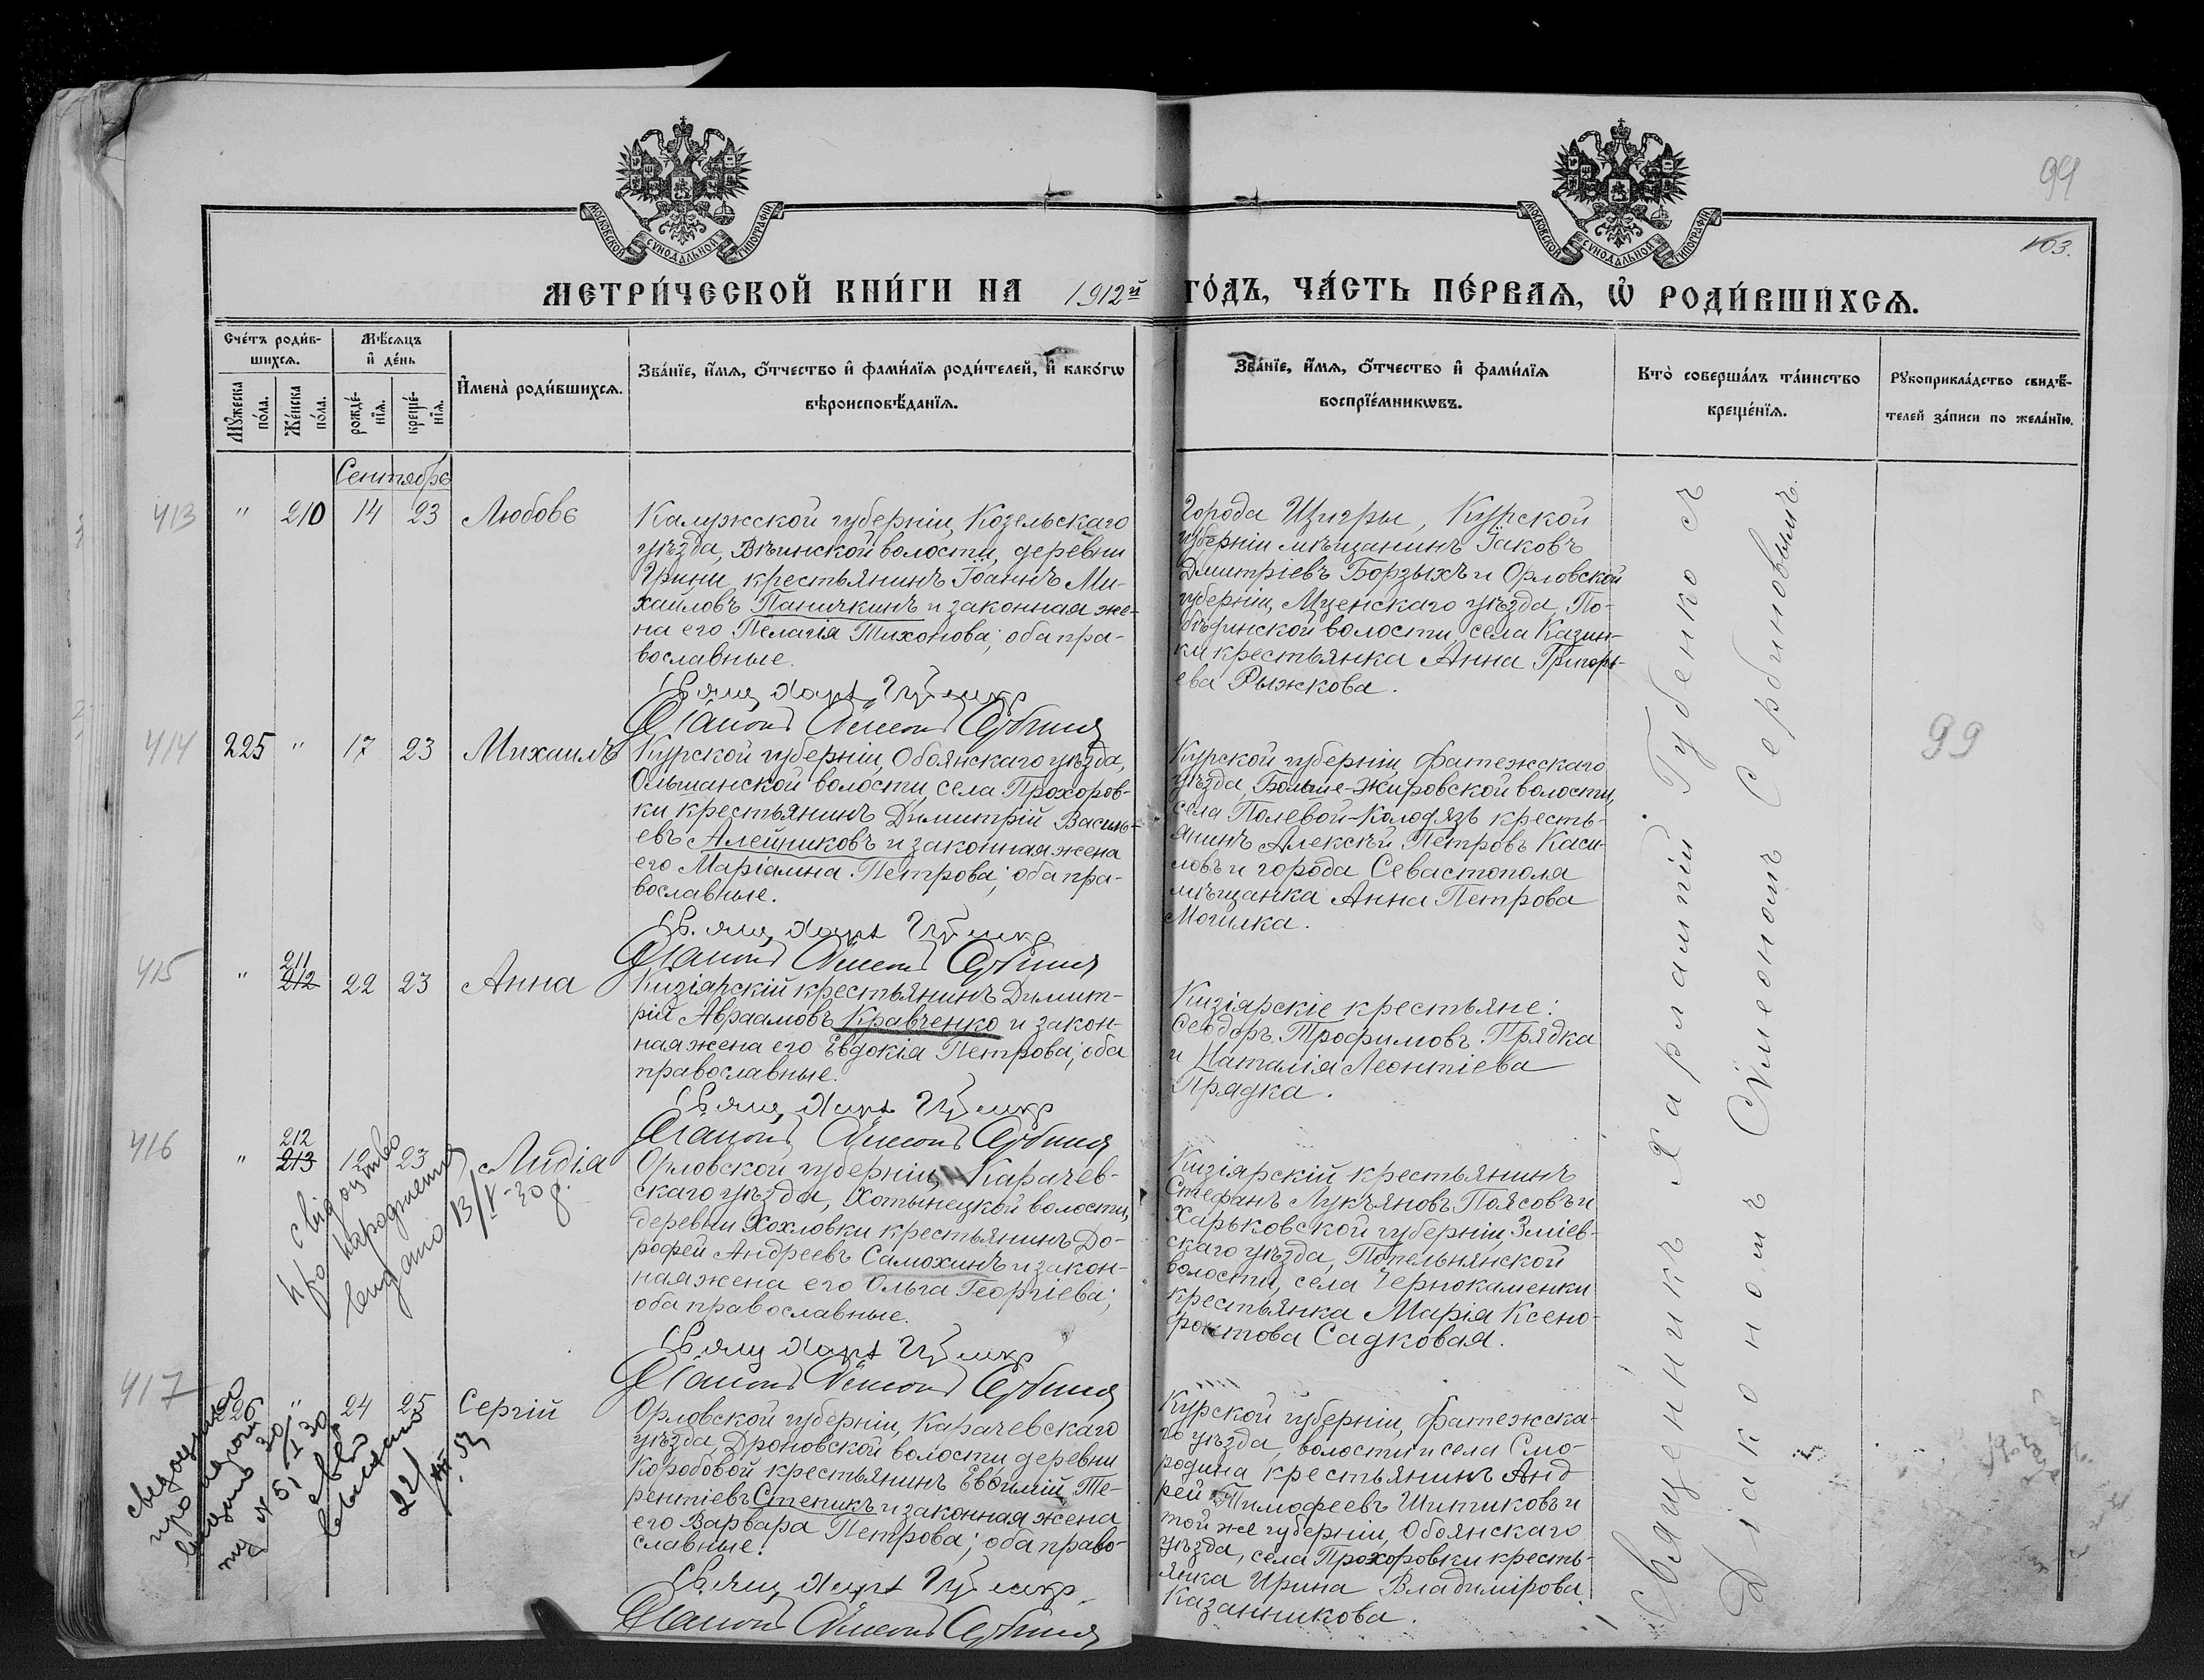 МОСКОВСКОЙ СУНОДАЛЬНОЙ ТИПОГРАФІИ
МОСКОВСКОЙ СУНОДАЛЬНОЙ ТИПОГРАФІИ
99
103.
МЕТРИ́ЧЕСКОЙ КНИ́ГИ НА 1912й ГО́ДЪ, ЧА́СТЬ ПЕ́РВАѦ, Ѡ РОДИ́ВШИХСѦ.
Сче́тъ роди́в-
шихсѧ.
Мꙋ́жеска
по́ла.
Же́нска
по́ла.
Мѣ́сѧцъ
и҆ де́нь
рожде́-
нїѧ.
креще́-
нїѧ.
И҆мена̀ роди́вшихсѧ.
Зва́нїе, и҆́мѧ, ѻ҆́тчество и҆ фами́лїѧ роди́телей, и҆ како́гѡ
вѣроисповѣ́данїѧ.
Зва́нїе, и҆́мѧ, ѻ҆́тчество и҆ фами́лїѧ
воспрїе́мникѡвъ.
Кто̀ соверша́лъ та́инство
креще́нїѧ.
Рꙋкоприкла́дство свидѣ́-
телей за́писи по жела́нїю.
Сентябрь
413 " 210 14 23 Любовь
Калужской губерніи, Козельскаго
уѣзда, волости, деревни
крестьянинъ Іоаннъ Ми-
хаиловъ Паничкинъ и законная же-
на его Пелагія Тихонова; оба пра-
вославные.
Города Щигры, Курской
губерніи мѣщанинъ Іаковъ
Димитріевъ Борзыхъ и Орловской
губерніи, Мценскаго уѣзда, По-
бѣдинской волости, села Казин-
ки крестьянка Анна Григорь-
ева Рыжкова.
Свящ. Харл. Губенко
Діаконъ Сѵмеонъ Сербинов
414 225 " 17 23 Михаилъ
Курской губерніи, Обоянскаго уѣзда,
Ольшанской волости, села Прохоров-
ки крестьянинъ Димитрій Василь-
евъ Алейниковъ и законная жена
его Маріамна Петрова; оба пра-
вославные.
Курской губерніи, Фатежскаго
уѣзда, Больше-Жировской волости,
села Полевой-Колодязь кресть-
янинъ Алексѣй Петровъ Каси-
ловъ и города Севастополя
мѣщанка Анна Петрова
Могилка.
99
Свящ. Харл. Губенко
Діаконъ Сѵмеонъ Сербинов
415 " 211 212 22 23 Анна
Кизіярскій крестьянинъ Димит-
рій Авраамовъ Кравченко и закон-
ная жена его Евдокія Петрова; оба
православные.
Кизіярскіе крестьяне:
Ѳеодоръ Трофимовъ Прядка
и Наталія Леонтіева
Прядка.
Свящ. Харл. Губенко
Діаконъ Сѵмеонъ Сербинов
416 " 212 213 12 23 Лидія
Орловской губерніи, Карачев-
скаго уѣзда, Хотынецкой волости,
деревни Хохловки крестьянинъ До-
рофей Андреевъ Самохинъ и закон-
ная жена его Ольга Георгіева;
оба православные.
свідоцтво
про народження
видано 13/V-30 р.
Кизіярскій крестьянинъ
Стефанъ Лукьяновъ Поясовъ и
Харьковской губерніи, Зміев-
скаго уѣзда, Попельнянской
волости, села Чернокаменки
крестьянка Марія Ксено-
фонтова Садковая.
Свящ. Харл. Губенко
Діаконъ Сѵмеонъ Сербинов
417 226 " 24 25 Сергій
Орловской губерніи, Карачевскаго
уѣзда, Дроновской волости, деревни
Коробовой крестьянинъ Евѳимій Те-
рентіевъ Степинъ и законная жена
его Варвара Петрова; оба право-
славные.
Курской губерніи, Фатежска-
го уѣзда, волости и села Смо-
родина крестьянинъ Анд
рей Тимофеевъ Шитиковъ и
той же губерніи, Обоянскаго
уѣзда, села Прохоровки кресть-
янка Ирина Владимірова
Казанникова.
Свящ. Харл. Губенко
Діаконъ Сѵмеонъ Сербинов
Священникъ Харлампій Губенко съ
Діакономъ Сѵмеономъ Сербиновымъ.